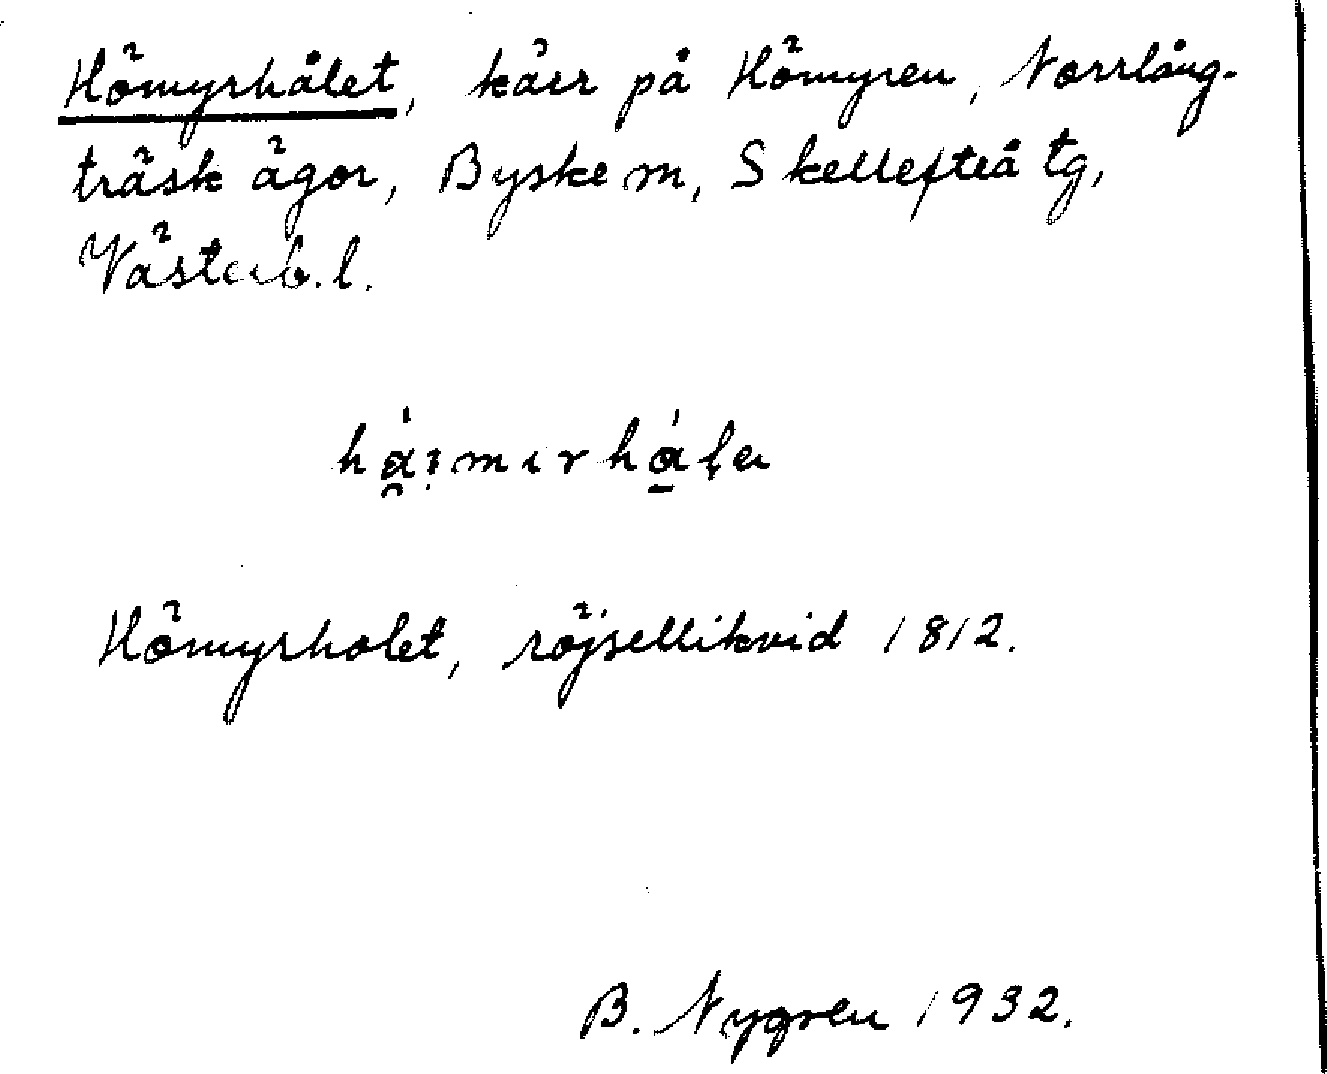 Hömyrhålet, kärr på Hömyren, Norrlång-
träsk ägor, Byske sn, Skellefteå tg,
Västerb. l.
Hömyrholet, röjsellikvid 1812.
B. Nygren 1932.